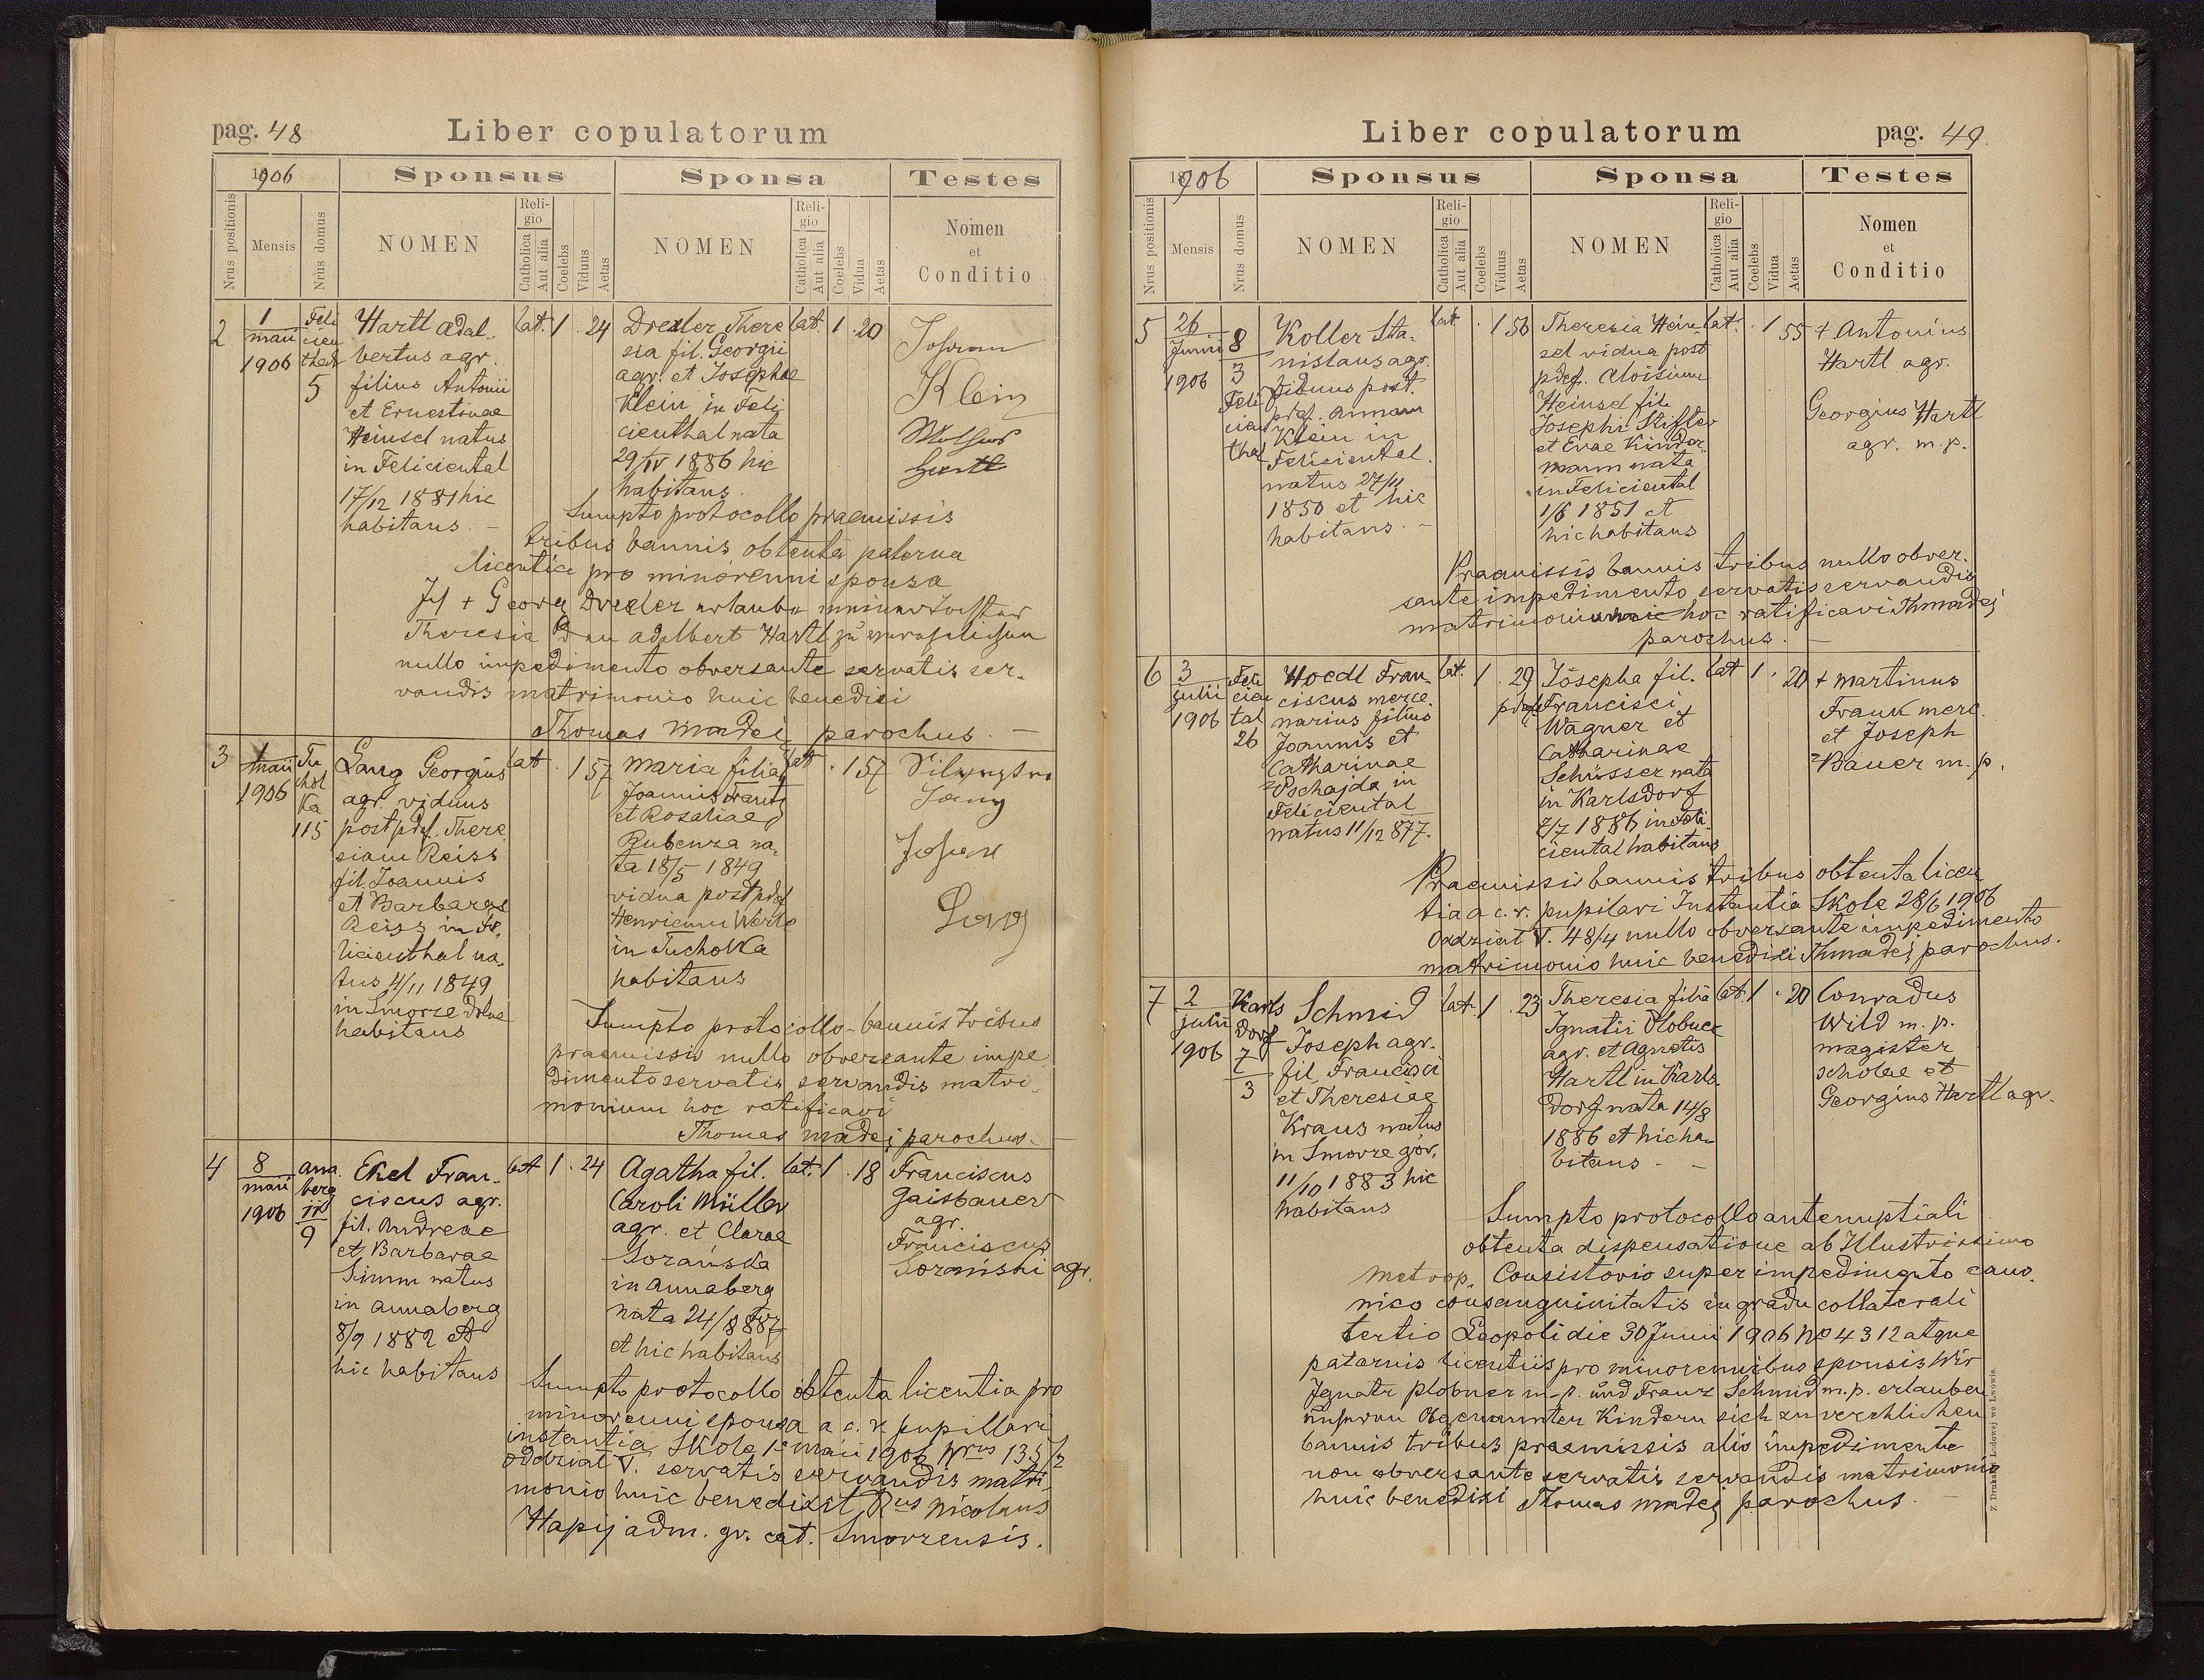 pag. 48
Liber copulatorum
1906
Sponsus
Sponsa
Testes
Nrus positionis
Mensis
Nrus domus
NOMEN
Religio
Catholica
Aut alia
Coelebs
Viduus
Aetas
NOMEN
Religio
Catholica
Aut alia
Coelebs
Vidua
Aetas
Nomen
et
Conditio
2
1
maii
1906
Feli
cien
thal
5
Hartl Adal-
bertus agr.
filius Antonii
et Ernestinae
Heinsel natus
in Feliciental
17/12 1881 hic
habitans. -
lat. 1 . 24
Drexler There
sia fil. Georgii
agr. et Josephae
Klein in Feli
cienthal nata
29/IV 1886 hic
habitans.
lat. 1 . 20
Johann
Klein
Hartl
Sumpto protocollo praemissis
tribus bannis obtenta paterna
licentia pro minorenni sponsa
Ich + Georg Drexler erlaube meiner Tochter
Theresia den Adelbert Hartl zu verehelichen
nullo impedimento obversante servatis ser-
vandis matrimonio huic benedixi
Thomas Madej parochus. -
3
1
maii
1906
Tu
chol
ka
115
Lang Georgius
agr. viduus
post pdef. There
siam Reiss
fil. Joannis
et Barbarae
Reiss in Fe-
licienthal na-
tus 4/11 1849
in Smorze dolne
habitans
lat . 1 57
Maria filia
Joannis Frantz
et Rosaliae
Rubenza na-
ta 18/5 1849
vidua post pdef
Henricum Werle
in Tucholka
habitans
lat . 1 57
Lang
Josef
Lang
Sumpto protocollo - bannis tribus
praemissis nullo obversante impe
dimento servatis servandis matri-
monium hoc ratificavi
Thomas Madej parochus. -
4
8
maii
1906
Anna
berg
9
Ekel Fran-
ciscus agr.
fil. Andreae
et Barbarae
Simm natus
in Annaberg
8/9 1882 et
hic habitans
lat 1 . 24
Agatha fil.
Caroli Müller
agr. et Clarae
Sorańska
in Annaberg
nata 24/8 887
et hic habitans
lat. 1 . 18
Franciscus
Gaisbauer
agr.
Franciscus
Soranski agr.
Sumpto protocollo obtenta licentia pro
minorenni sponsa a c. r. pupillari
instantia Skole 1e maii 1906 Nrus 135/2
Oddział V. servatis servandis matri
monio huic benedixit Rus Nicolaus
Hapij adm. gr. cat. Smorzensis.
Liber copulatorum
pag. 49
1906
Sponsus
Sponsa
Testes
Nrus positionis
Mensis
Nrus domus
NOMEN
Religio
Catholica
Aut alia
Coelebs
Viduus
Aetas
NOMEN
Religio
Catholica
Aut alia
Coelebs
Vidua
Aetas
Nomen
et
Conditio
5
26
Junii
1906
8
3
Feli
cien
thal
Koller Sta-
nislaus agr.
viduus post.
pdef. Annam
Klein in
Feliciental.
natus 27/11
1850 et hic
habitans. -
lat. . 1 56
Theresia Hein
sel vidua post
pdef. Aloisium
Heinsel fil.
Josephi Stifter
et Evae Kinder-
mann nata
in Feliciental
1/6 1851 et
hic habitans
lat. . 1 55
+ Antonius
Hartl agr.
Georgius Hartl
agr. m.p.
Praemissis bannis tribus nullo obver-
sante impedimento servatis servandis
matrimonium hoc ratificavi Th Madej
parochus. -
6
3
julii
1906
Feli
cien
tal
26
Hoedl Fran
ciscus merce
narius filius
Joannis et
Catharinae
Pschajda in
Feliciental
natus 11/12 877.
lat. 1 . 29
Josepha fil.
pdef Francisci
Wagner et
Catharinae
Schüsser nata
in Karlsdorf
7/7 1886 in Feli
ciental habitans
lat 1 . 20
+ Martinus
Frank merc.
et Joseph
Bauer m.p.
Praemissis bannis tribus obtenta licen
tia a c. r. pupilari Instantia Skole 28/6 1906
Oddział V. 48/4 nullo obversante impedimento
matrimonio huic benedixi Th Madej parochus.
7
2
julii
1906
Karls
dorf
7
3
Schmid
Joseph agr.
fil. Francisci
et Theresiae
Kraus natus
in Smorze gór.
11/10 1883 hic
habitans
lat. 1 . 23
Theresia filia
Ignatii Plobner
agr. et Agnetis
Hartl in Karls
dorf nata 14/8
1886 et hic ha-
bitans - -
lat. 1 . 20
Conradus
Wild m. p.
magister
scholae et
Georgius Hartl agr.
Sumpto protocollo antenuptiali
obtenta dispensatione ab Illustrissimo
Metrop. Consistorio super impedimento cano-
nico consanguinitatis in gradu collaterali
tertio Leopoli die 30 Junii 1906 No 4312 atque
paternis licentiis pro minorennibus sponsis Wir
Ignatz Plobner m. p. und Franz Schmid m. p. erlauben
unseren Obgenannten Kindern sich zu verehlichen
bannis tribus praemissis alio impedimento
non obversante servatis servandis matrimonio
huic benedixi Thomas Madej parochus. -
Z Drukarni Ludowej we Lwowie.